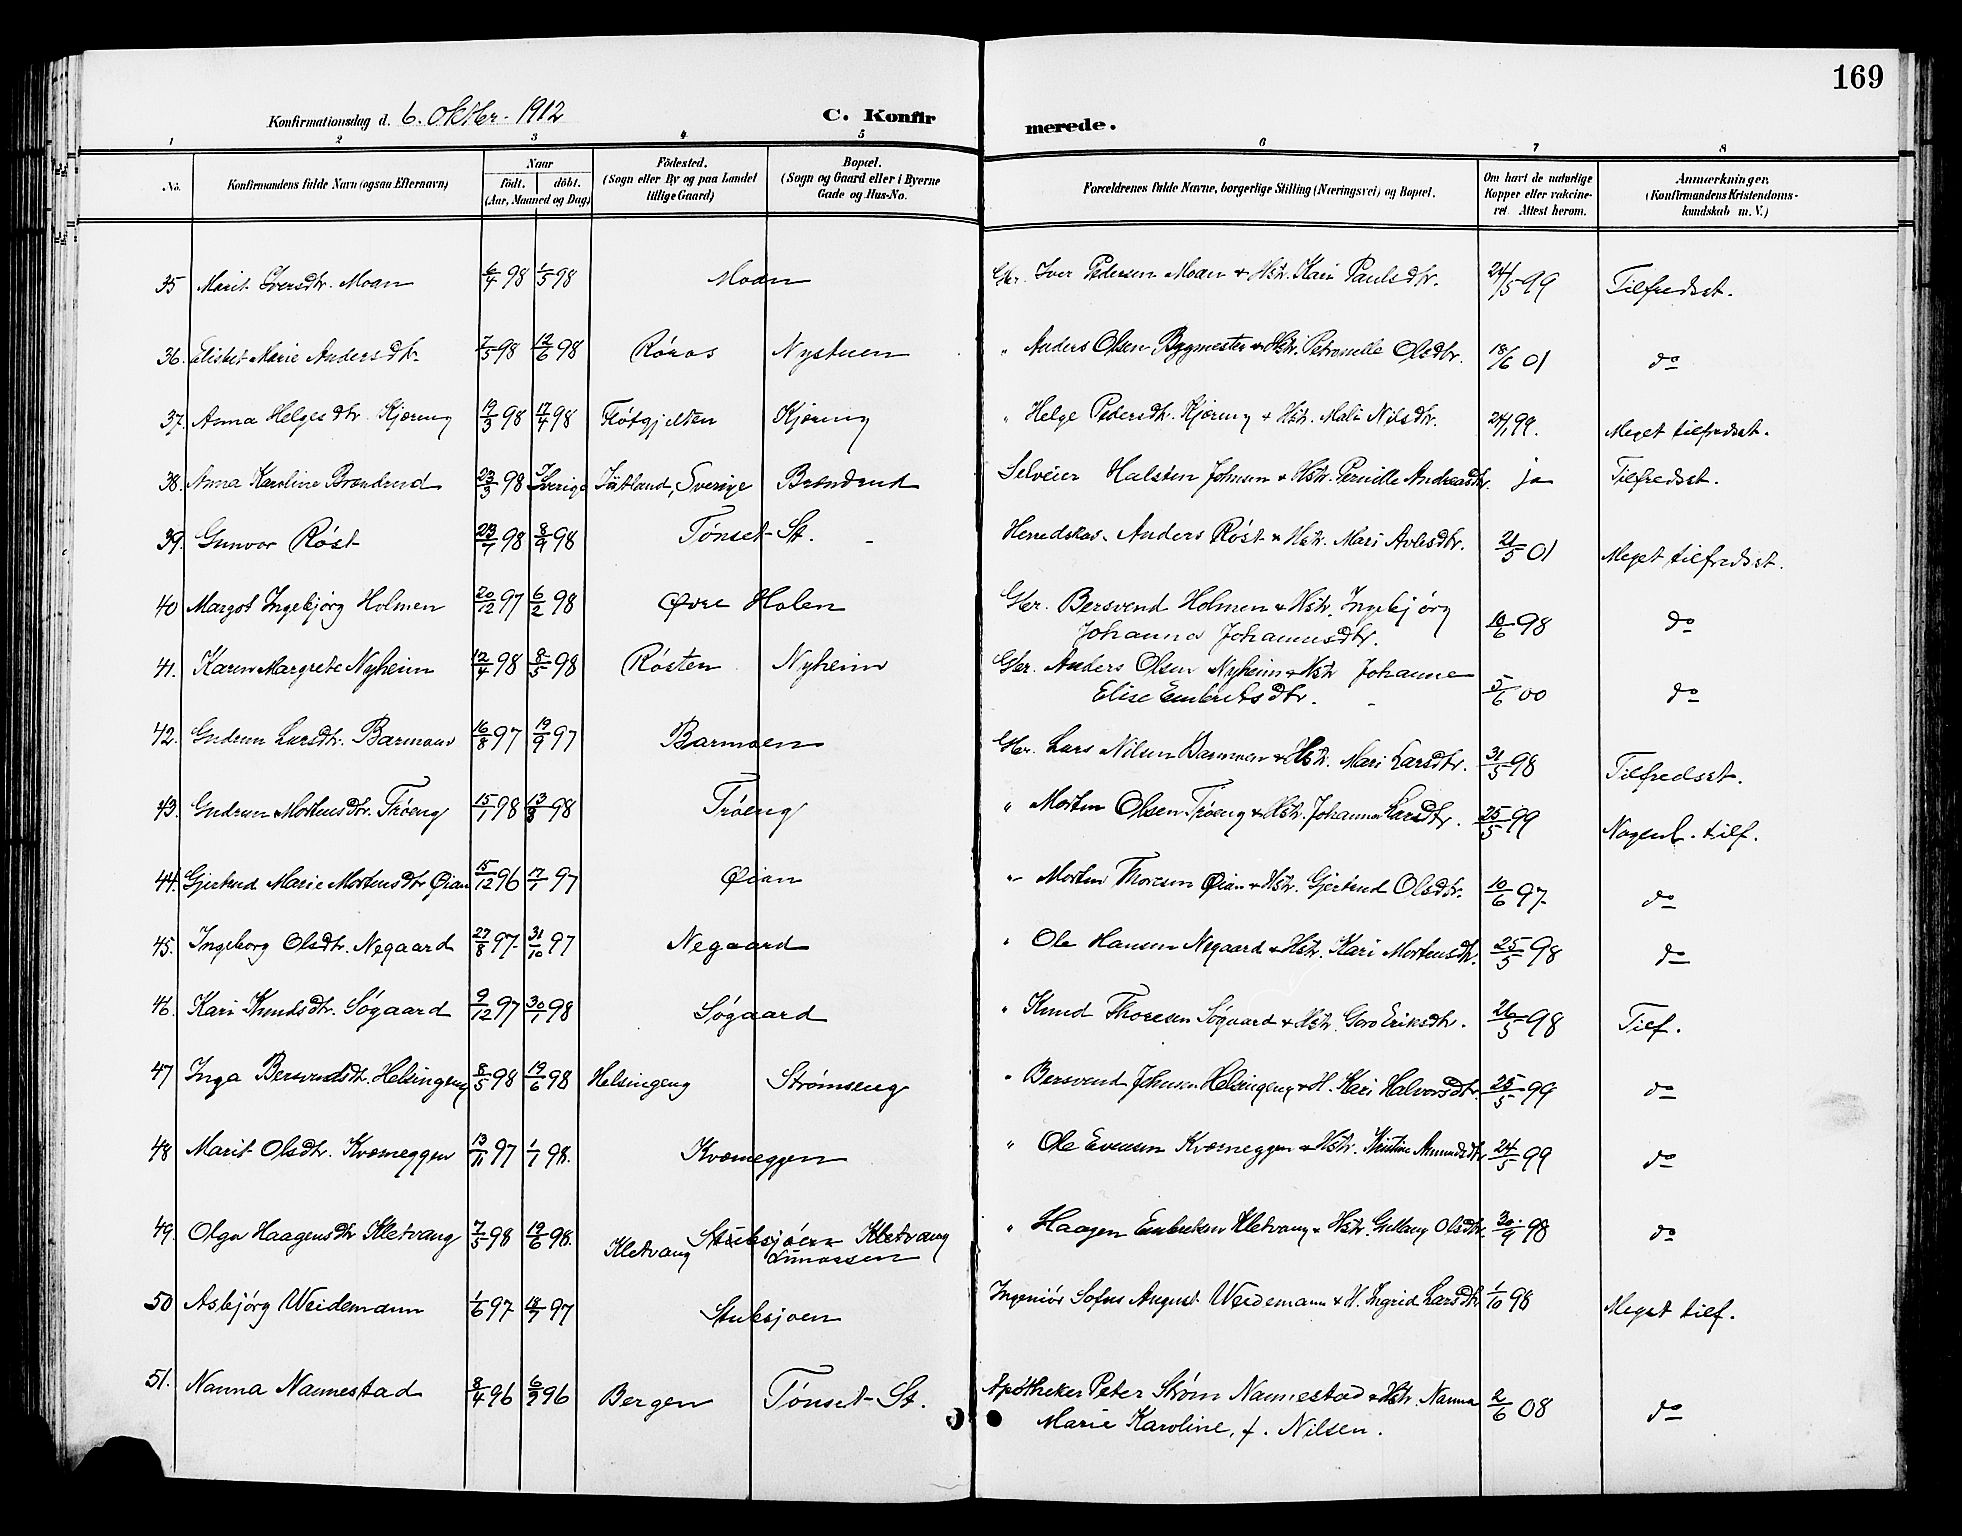 169
Konfirmationsdag d. 6. Oktbr. 1912 C. Konfirmerede.
1 2 3 4 5 6 7 8
No. Konfirmandens fulde Navn (ogsaa Efternavn) Naar født. døbt. (Aar, Maaned og Dag) Fødested. (Sogn eller By og paa Landet tillige Gaard) Bopæl. (Sogn og Gaard eller i Byerne Gade og Hus-No. Forældrenes fulde Navne, borgerlige Stilling (Næringsvei) og Bopæl. Om havt de naturlige Kopper eller vakcineret. Attest herom. Anmærkninger, (Konfirmandens Kristendomskundskab m. V.)
35 Marit Iversdtr. Moan 6/4 98 1/5 98 Moan Gbr. Iver Pedersen Moan & Hstr. Kari Paulsdtr. 24/5 99 Tilfredsst.
36. Elisbet Marie Andersdtr. 7/5 98 12/6 98 Røros Nystuen " Anders Olsen Bygmester & Hstr. Petronelle Olsdtr. 18/6 01 do
37. Anna Helgesdtr. Kjæreng 19/3 98 17/4 98 Fløtgjelten Kjæreng " Helge Pedersdtr. Kjæreng & Hstr. Mali Nilsdtr. 24/ 99. Meget tilfredsst.
38. Anna Karoline Brændrud 23/3 98 I Sverige Jätland, Sverige Brændrud Selveier Halsten Johnsen & Hstr. Pernille Andreasdtr. ja Tilfredsst.
39. Gunvor Røst 23/7 98 8/9 98 Tønset St. Herredskas. Anders Røst & Hstr. Mari Avlesdtr. 21/5 01 Meget tilfredsst.
40 Margot Ingebjørg Holmen 20/12 97 6/2 98 Øvre Holen Gbr. Bersvend Holmen & Hstr. Ingebjørg
Johanna Johannesdtr. 10/6 98 do
41. Karen Margrete Nyheim 12/4 98 8/5 98 Røsten Nyheim Gbr. Anders Olsen Nyheim & Hstr. Johanne
Elise Embretsdtr. 5/6 00 do
42. Gudrun Larsdtr. Barmoen 16/8 97 19/9 97 Barmoen Gbr. Lars Nilsen Barmoen & Hstr. Mari Larsdtr. 31/5 98 Tilfredsst.
43. Gudrun Mortensdtr. Trøeng 15/1 98 13/3 98 Trøeng " Morten Olsen Trøeng & Hstr. Johanna Larsdtr. 25/5 99 Nogenl. tilf.
44. Gjertrud Marie Mortensdtr Øian 15/12 96 17/1 97 Øian " Morten Thoresen Øian & Hstr. Gjertrud Olsdtr. 10/6 97. do
45. Ingeborg Olsdtr. Negaard 27/8 97. 31/10 97 Negaard " Ole Hansen Negaard & Hstr. Kari Mortensdtr. 25/5 98 do
46. Kari Knudsdtr. Søgaard 9/12 97 30/1 98 Søgaard " Knud Thoresen Søgaard & Hstr. Goro Eriksdtr. 26/5 98 Tilf.
47 Inga Bersvendsdtr. Helsingeng 8/5 98 19/6 98 Helsingeng Strømseng " Bersvend Johnsen Helsingeng & H. Kari Halvorsdtr. 25/5 99 do
48 Marit Olsdtr. Kværneggen 13/11 97 1/1 98. Kværneggen " Ole Evensen Kværneggen & Hstr. Kristine Amundsdtr. 24/5 99 do
49. Olga Haagensdtr Kletvang 7/5 98 19/6 98. Stubsjøen Kletvang
Kletvang " Haagen Embretsen Kletvang & Hstr. Gullaug Olsdtr. 30/9 98 do
50 Asbjørg Weidemann 1/6 97 18/7 97 Stubsjøen Ingeniør Sofus August Weidemann & H. Ingrid Larsdtr. 1/10 98 Meget tilf.
51. Nanna Nannestad 8/4 96 6/9 96 Bergen Tønset St. Apotheker Peter Strøm Nannestad & Hstr. Nanna
Marie Karoline, f. Nilsen. 2/6 08 do